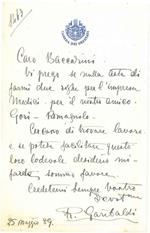 Caro Baccarini
Vi prego se nulla osta di
farmi due righe per l'impresa
Medici. per il nostro amico
Gori - Romagnolo.
Cercano di trovare lavoro
e se potete facilitare questo
loro
desiderio mi
somma favore.
Credetemi sempre Vostro
R. Garibaldi
25 Maggio 89.